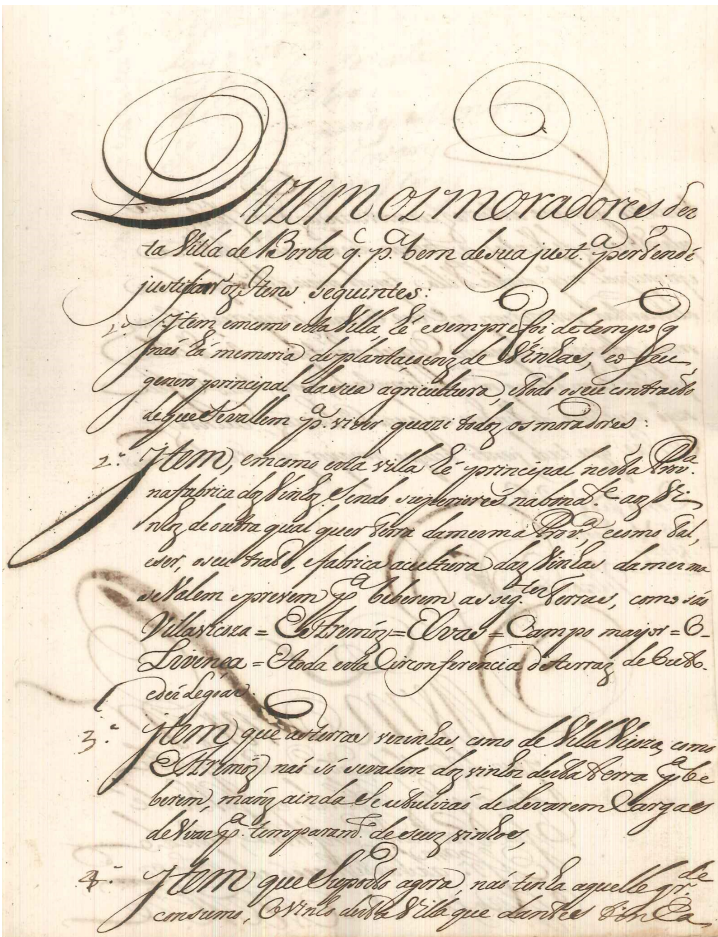 Dizem os moradores des
ta Villa de Borba q. p.ª bem de sua just.ª pertende
justificar os Itens seguintes:
1.º Item, em como esta Villa hé e sempre foi de tempo q
naõ há memoria de plantaçoenz de Vinhas, e o seu
genero principal da sua agricultura, e todo o seu contracto
de que se vallem p.ª viver quazi todoz os moradores:
2.º Item, em como esta villa hé principal nesta Prov.ª
na fabrica doz Vinhoz sendo superiores na bond.e aoz Vi
nhoz de outra qual quer terra da mesma Prov.ª, e como tal,
o seu trato, e fabrica a cultura daz Vinhas da mesma
se valem e provem p.ª beberem as seg.tes terras, como saõ
Villa vicoza = Estremóz = Elvas = Campo mayor = O
Livença = E toda esta Circonferencia de terraz de
legoas.
3.º Item que as terras vezinhas, como de Villa Viçoza, como
Estremóz, naõ só se valem doz vinhoz desta terra p.ª be
berem, maiz ainda se utilizaõ de levarem Cargas
de Uvas p.ª temperam.to de seuz vinhos,
4.º Item que Suposto agora, naõ tinha aquelle gr.de
consumo, O vinho desta Villa que dantes tinha